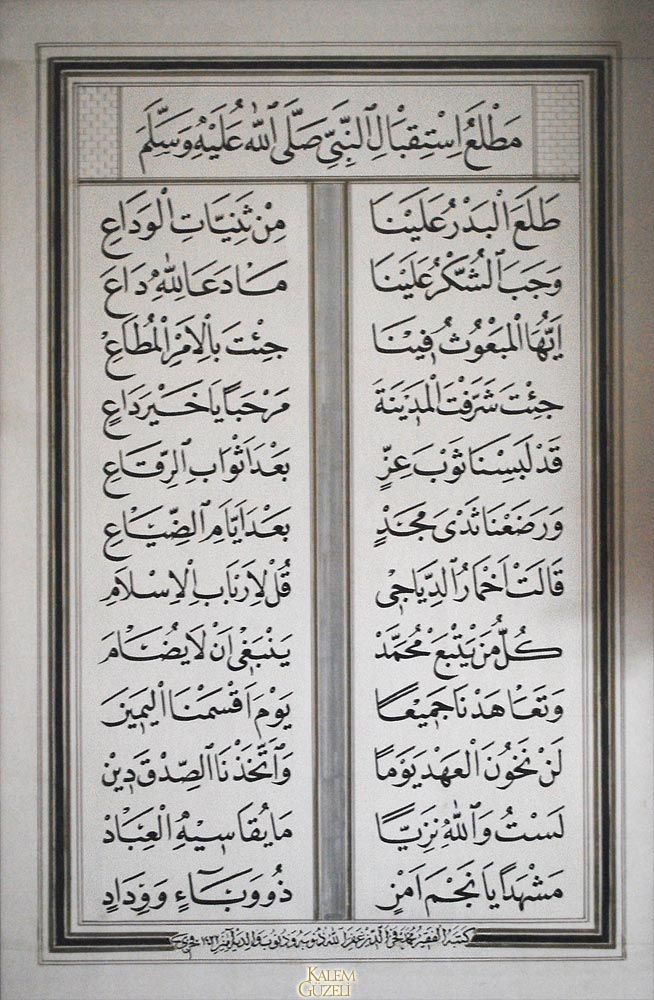 مَطْلَعُ اِسْتِقْبَالِ النَّبِيِّ صَلَّى اللّٰهُ عَلَيْهِ وَسَلَّمَ
طَلَعَ الْبَدْرُ عَلَيْنَا مِنْ ثَنِيَّاتِ الْوَدَاعِ
وَجَبَ الشُّكْرُ عَلَيْنَا مَا دَعَا لِلّٰهِ دَاعَ
اَيُّهَا الْمَبْعُوثُ فِينَا جِئْتَ بِالْاَمْرِ الْمُطَاعِ
جِئْتَ شَرَّفْتَ الْمَدِينَةَ مَرْحَبًا يَا خَيْرَ دَاعٍ
قَدْ لَبِسْنَا ثَوْبَ عِزٍّ بَعْدَ اَثْوَابِ الرِّقَاعِ
وَرَضَعْنَا ثَدْىَ مَجْدٍ بَعْدَ اَيَّامِ الضِّيَاعِ
قَالَتْ اَقْمَارُ الدَّيَاجِى قُلْ لِاَرْبَابِ الْاِسْلَامِ
كُلُّ مَنْ يَتْبَعْ مُحَمَّدْ يَنْبَغِى اَنْ لَا يُضَامَ
وَتَعَاهَدْنَا جَمِيعًا يَوْمَ اَقْسَمْنَا الْيَمِينَ
لَنْ نَخُونَ الْعَهْدَ يَوْمًا وَاتَّخَذْنَا الصِّدْقَ دِينْ
لَسْتُ وَاللّٰهُ نَزِيًّا مَا يُقَاسِيهِ الْعِبَادْ
مَشْهَدًا يَا نَجْمَ اَمْنٍ ذُو وَبَاءٍ وَوِدَادٍ
كتبه الفقير غفر الله ذنوبه
KALEM
GÜZELİ